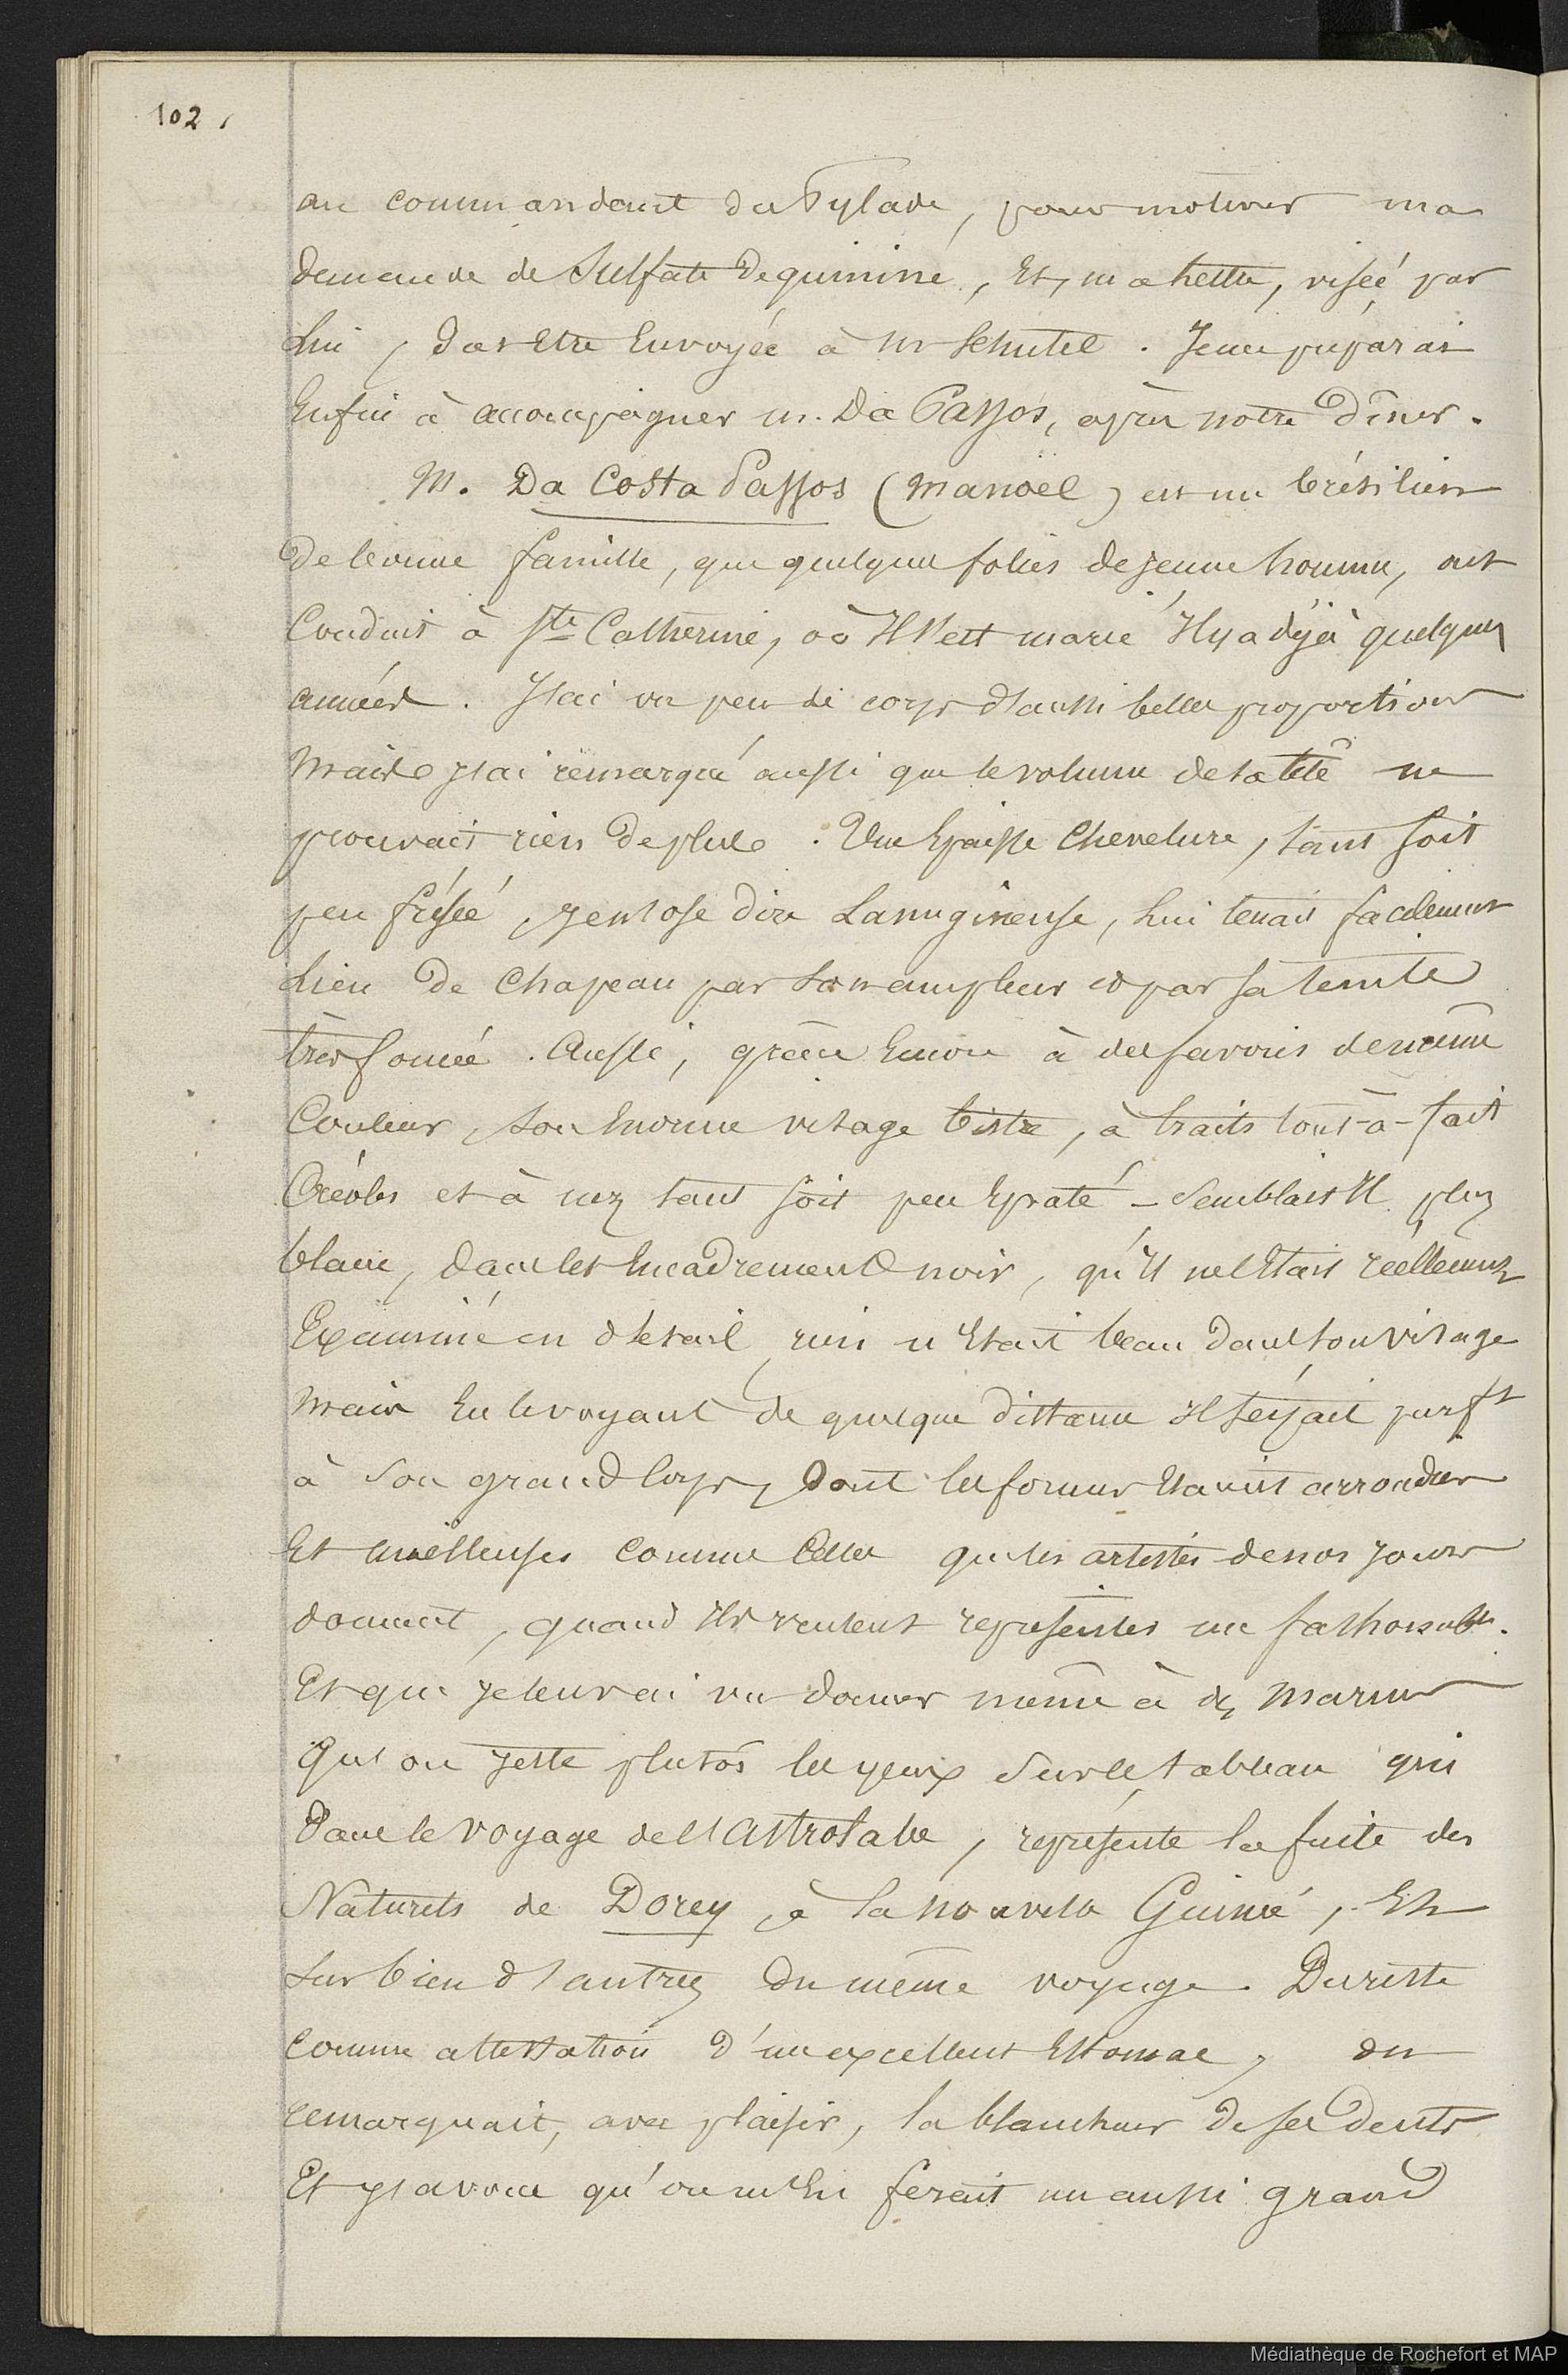 102,
au commandant du Pylade, pour motiver ma
demande de Sulfate de quinine, Et, ma lettre, visée par
Lui, dut Etre Envoyée à mr Schutel. Je me préparai
Enfin à accompagner m. Da Passos, après notre Dîner.
M. Da Costa Passos (Manoël) est un brésilien
De bonne famille, que quelques folies de jeune homme, ont
Conduit à Ste Catherine, où Il s'est marié Il y a déjà quelques
années. J'ai vu peu de corps d'aussi belles proportions
Mais j'ai remarqué aussi que le volume de sa tête ne
prouvait rien De plus. Une Epaisse Chevelure, tant soit
peu frisée, j'entose dire Lanugineuse, lui tenait facilement
Lieu De Chapeau par son ampleur et par sa teinte
très foncée. Aussi, grâce Encore à des favoris de même
Couleur, son Enorme visage bistre, à traits tout-à-fait
Créoles et à nez tant soit peu Epaté - Semblait Il plus
blanc, dans les Encadrements noir, qu'Il ne l'Etait réellement
Examiné en détail, rien n'Etait beau dans son visage
Mais En le voyant de quelque distance Il seyait parft
à Son grand Corps, Dont les formes Etaient arrondies
Et moëlleuses comme Celles que les artistes de nos jours
donnent, quand Ils veulent représenter un fashionable.
Et que je leur ai vu donner même à des marins
Qu'on jette plutôt les yeux Sur le tableau qui
Dans le voyage de l'astrolabe, représente la fuite des
Naturels de Dorey, à la nouvelle Guinée, Et
Sur bien d'autres du même voyage. Du reste
Comme attestation d'un excellent Estomac, on
remarquait, avec plaisir, la blancheur De ses Dents
Et j'avoue qu'on m'En ferait un aussi grand
Médiathèque de Rochefort et MAP